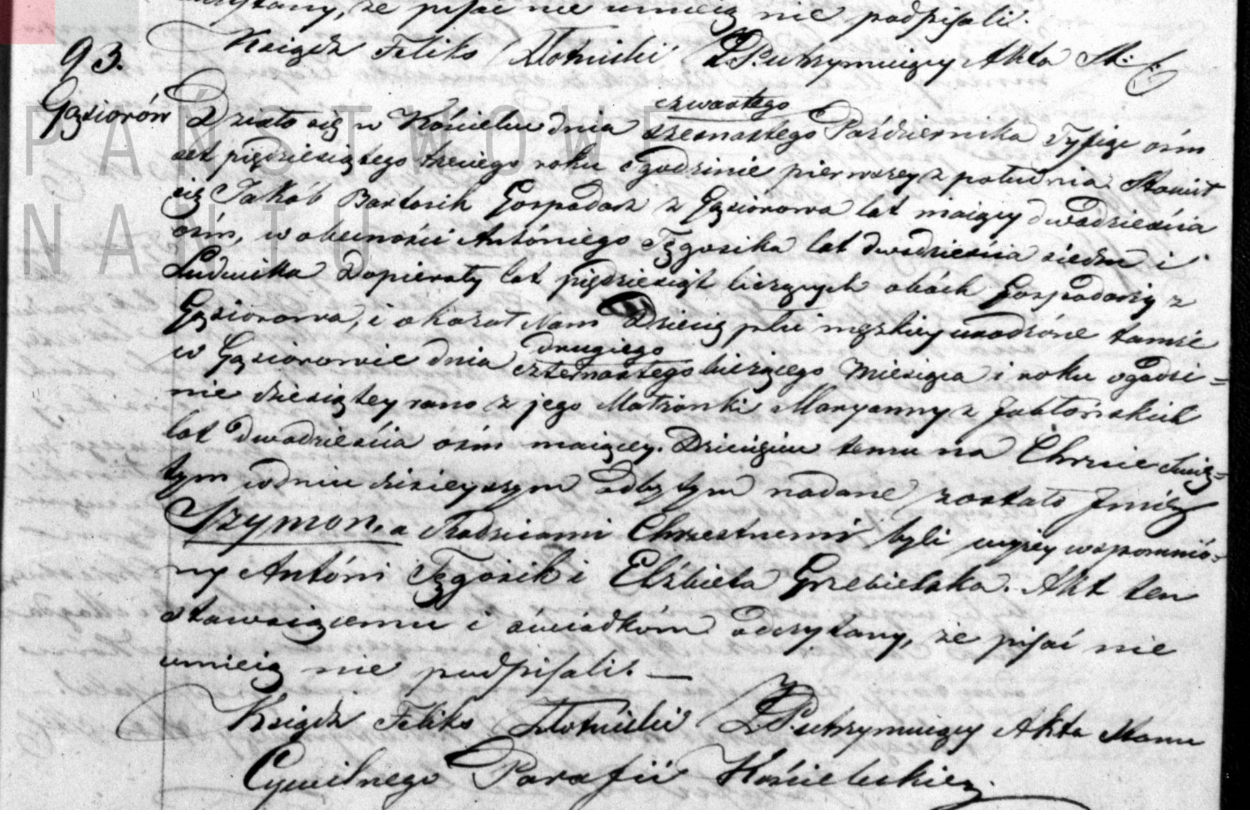 czytany, że pisać nie umieią nie podpisali.
Ksiądz Felix Złotnicki Z.P. utrzymuiący Akta St: C:
93.
Gąsiorów
czwartego
Działo się w Kościelcu dnia szesnastego Października Tysiąc ośm
set pięćdziesiątego trzeciego roku o godzinie pierwszey z południa Stawił
się Jakób Bartosik Gospodarz z Gąsiorowa lat maiący dwadzieścia
ośm, w obecności Antóniego Tęgosika lat dwadzieścia siedm i
Ludwika Dopierały lat pięćdziesiąt liczących obóch Gospodarzy z
Gąsiorowa, i okazał Nam Dziecię płci męzkiey urodzóne tamże
drugiego
w Gąsiorowie dnia czternastego bieżącego Miesiąca i roku o godzi=
nie dziesiątey rano z jego Małżonki Maryanny z Jabłońskich
lat dwadzieścia ośm maiącey. Dziecięciu temu na Chrzcie Swię=
tym w dniu dzisieyszym odbytym nadane zostało Jmię
Szymon, a Rodzicami Chrzestnemi byli wyzey wspomnió=
ny Antóni Tęgosik i Elżbieta Grzebielska. Akt ten
stawaiącemu i świadkóm odczytany, że pisać nie
umieią nie podpisali. —
Ksiądz Felix Złotnicki Z.P. utrzymuiący Akta Stanu
Cywilnego Parafii Kościelskiey.
PAŃSTWOWE